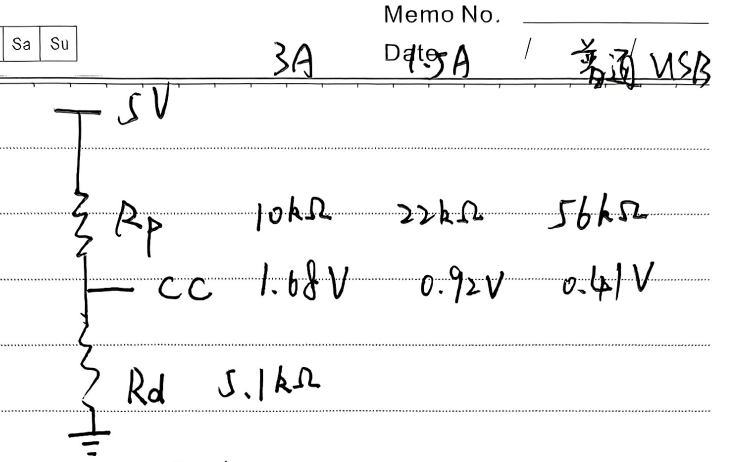 Memo No.
Sa Su
Date / /
3A 1.5A 普通 USB
5V
Rp 10kΩ 22kΩ 56kΩ
CC 1.68V 0.92V 0.41V
Rd 5.1kΩ